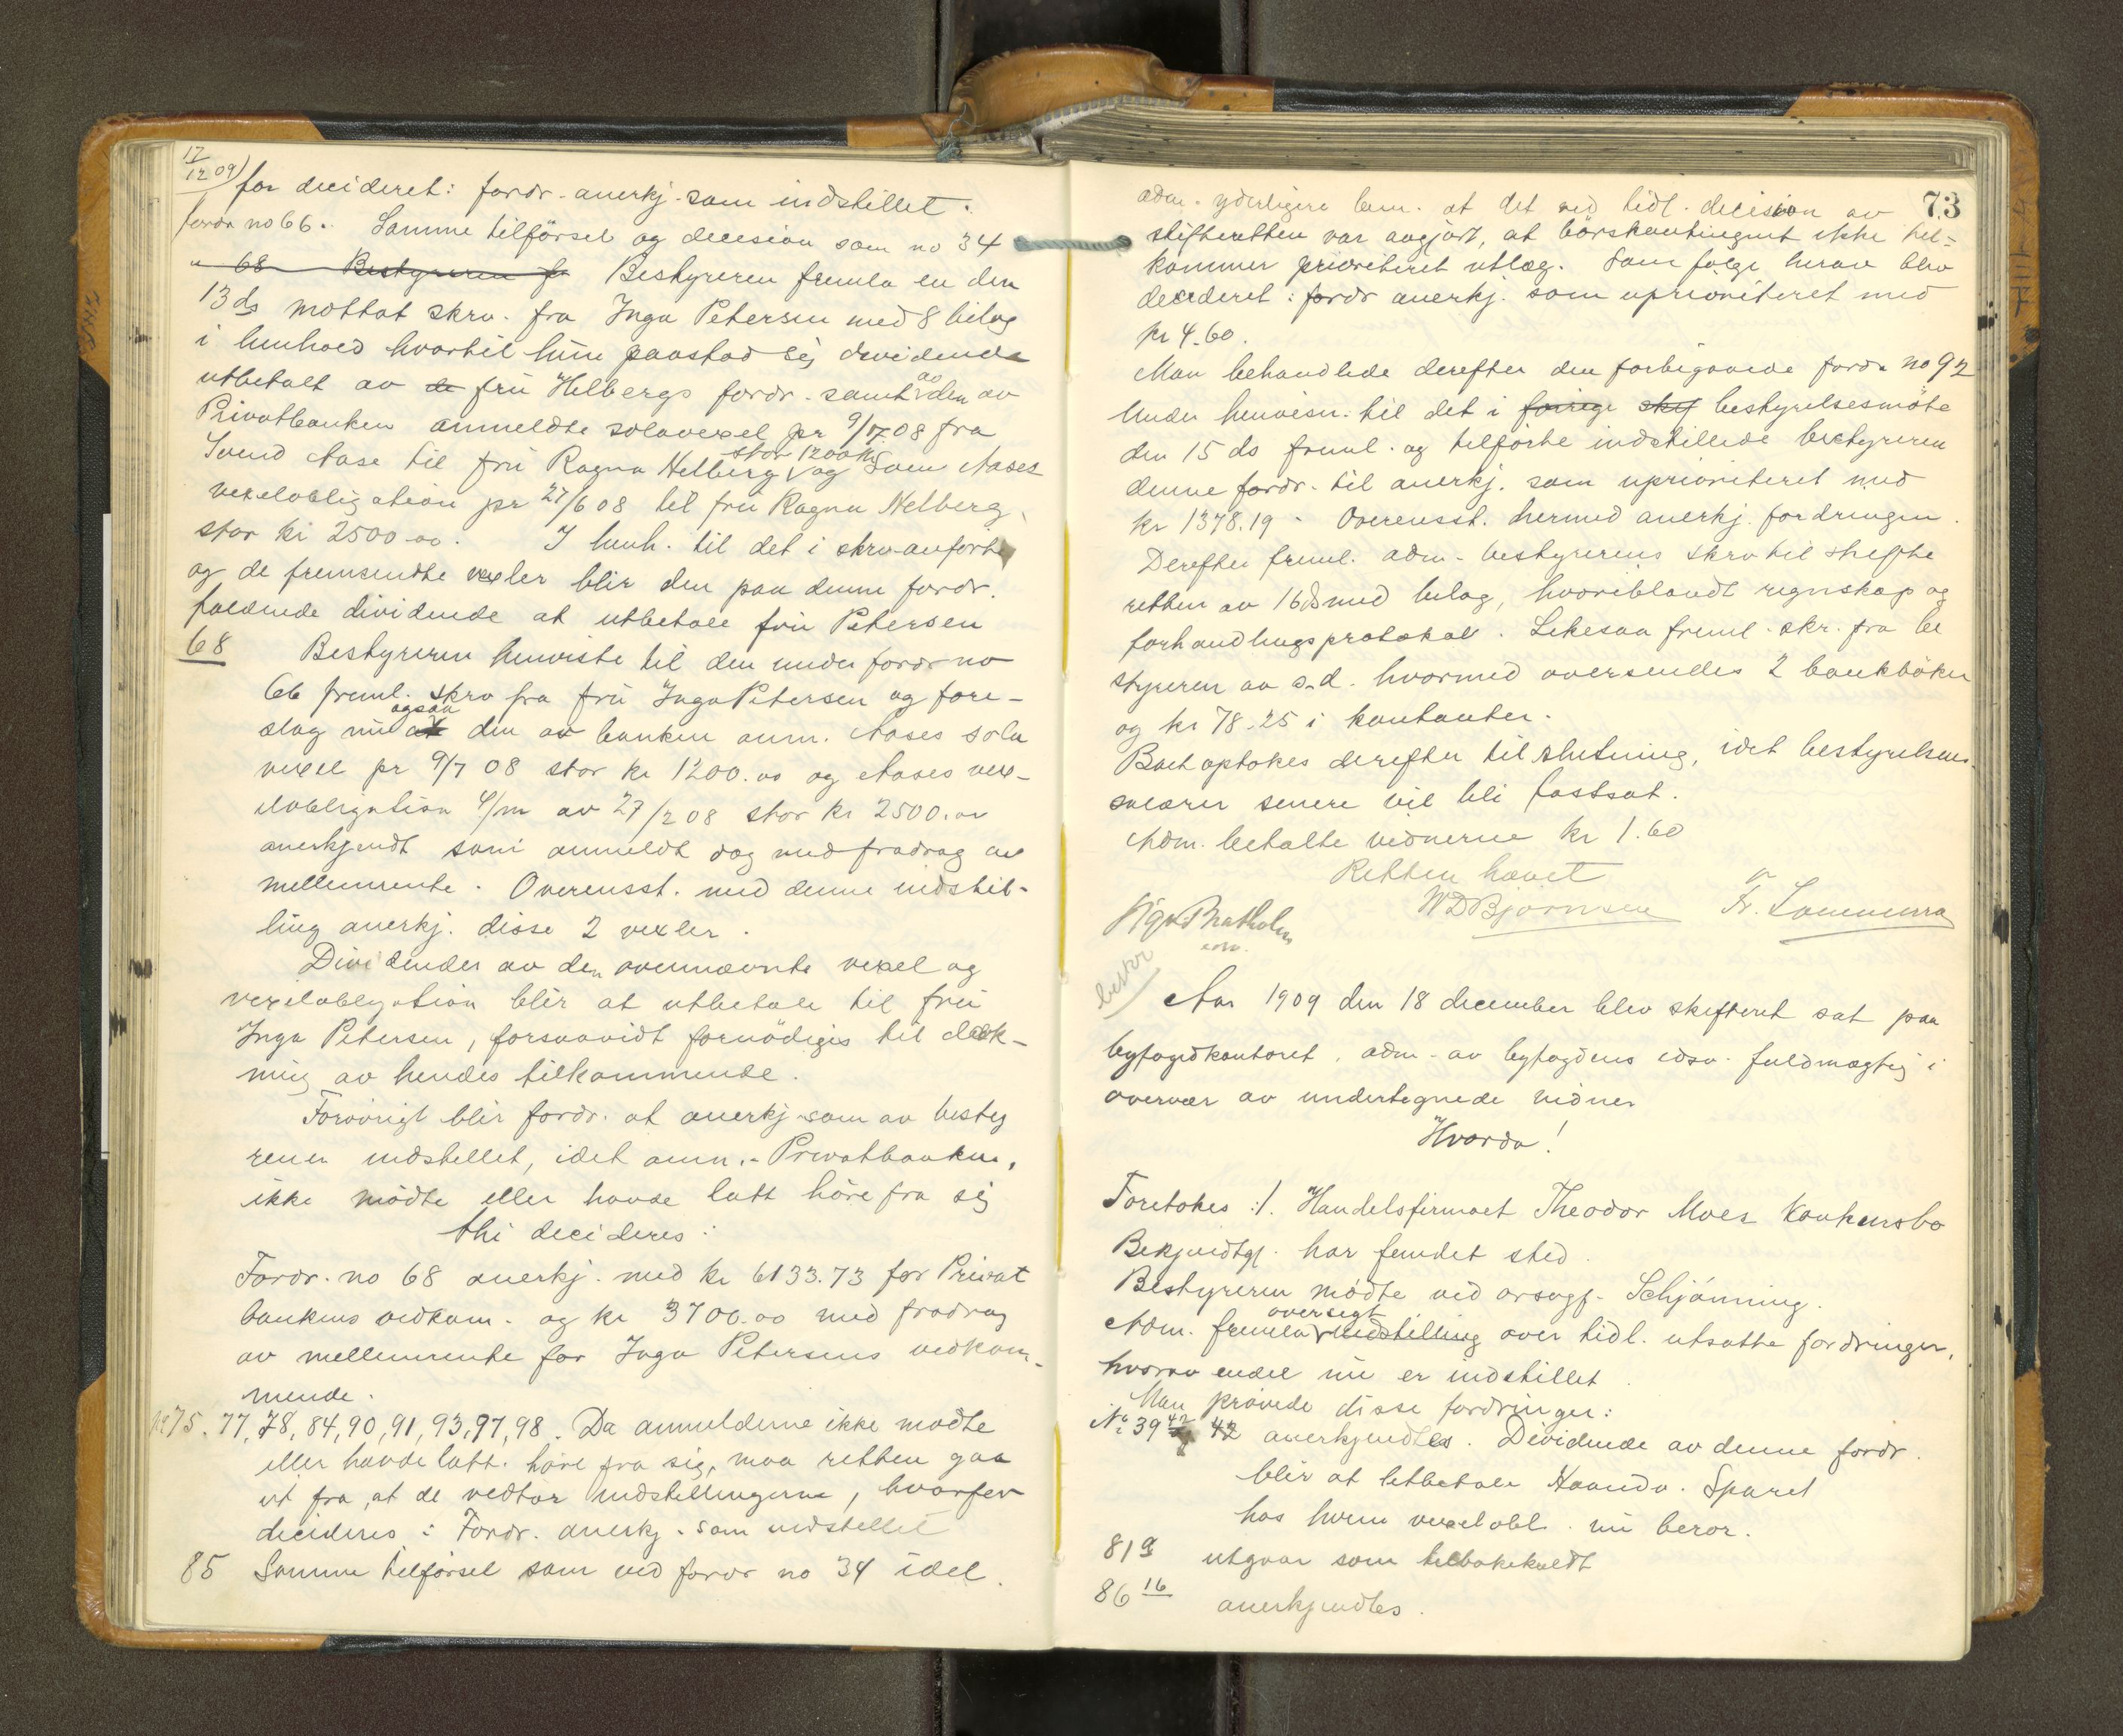 17/12 09)
for decideret: fordr. anerkj. som indstillet.
fordr no 66. Samme tilförsel og decision som no 34
" 68 Bestyreren f Bestyreren fremla en den
13 ds mottat skrv. fra Inga Petersen med 8 bilag
i henhold hvortil hun paastod sig dividende
utbetalt av de frü Helbergs fordr. samt av den av
Privatbanken anmeldte solavexel pr 9/7 08 fra
Svend Aase til frü Ragna Helberg stor 1200 kr og Svein Aases
vexelobligation pr 27/6 08 til frü Ragna Helberg,
stor kr 2500.00. I henh. til det i skrv. anförte
og de fremsendte vexler blir den paa denne fordr.
faldende dividende at utbetale frü Petersen
68 Bestyreren henviste til den under fordr no
66 freml. skrv fra frü Inga Petersen og fore-
slog nu at ogsaa den av banken anm. Aases sola
vexel pr 9/7 08 stor kr 1200.00 og Aases vex-
elobligation 4/m av 27/2 08 stor kr 2500.00
anerkjendt som anmeldt dog med fradrag av
mellemrente. Overensst. med denne indstil-
ling anerkj. disse 2 vexler.
Dividender av den ovennævnte vexel og
vexelobligation blir at utbetale til frü
Inga Petersen, forsaavidt fornödiges til dæk-
ning av hendes tilkommende.
Forövrigt blir fordr. at anerkj. som av besty
reren indstillet, idet anm. - Privatbanken,
ikke mödte eller havde latt höre fra sig
thi decideres:
Fordr. no 68 anerkj. med kr 6133.73 for Privat
bankens vedkom. og kr 3700.00 med fradrag
av mellemrente for Inga Petersens vedkom-
mende.
No 75. 77, 78, 84, 90, 91, 93, 97, 98. Da anmelderne ikke mödte
eller havde latt höre fra sig, maa retten gaa
ut fra, at de vedtar indstillingerne, hvorfor
decideres: Fordr. anerkj. som indstillet
85 Samme tilförsel som ved fordr no 34 idet
73
adm. yderligere bem. at det ved tidl. decision av
skifteretten var avgjort, at börskontingent ikke til-
kommer prioriteret utlæg. Som følge herav blev
decideret: fordr anerkj. som uprioriteret med
kr 4.60.
Man behandlede derefter den forbigaaede fordr no 92
Under henvisn. til det i forrige skif bestyrelsesmöte
den 15 ds freml. og tilförte indstillede bestyreren
denne fordr. til anerkj. som uprioriteret med
kr 1378.19. Overensst. hermed anerkj. fordringen.
Derefter freml. adm. bestyrerens skrv til skifte
retten av 16 ds med bilag, hvoriblandt regnskap og
forhandlingsprotokol. Likesaa freml. skr. fra be
styreren av s.d. hvormed oversendes 2 bankböker
og kr 78.25 i kontanter.
Boet optokes derefter til slutning, idet bestyrelsens
salærer senere vil bli fastsat.
Adm. betalte vidnerne kr 1.60
Retten hævet
Sigv. Bratholm WDBjørnsen Fr. Lommerra
beskr
Aar 1909 den 18 december blev skifteret sat paa
byfogedkontoret, adm. av byfogdens edsv. fuldmægtig i
overvær av undertegnede vidner
Hvorda!
Foretokes :/. Handelsfirmaet Theodor Moes Konkursbo
Bekjendtgj. har fundet sted.
Bestyreren mödte ved orsagf. Schjönning.
Adm. fremla oversigt indstilling over tidl. utsatte fordringer,
hvorav endel nu er indstillet.
Man prövede disse fordringer:
No 39 42 42 anerkjendtes. Dividende av denne fordr.
blir at utbetale Haandv. Sparel
hos hvem vexelobl. nu beror.
81 9 utgaar som tilbakekaldt
86 16 anerkjendtes.